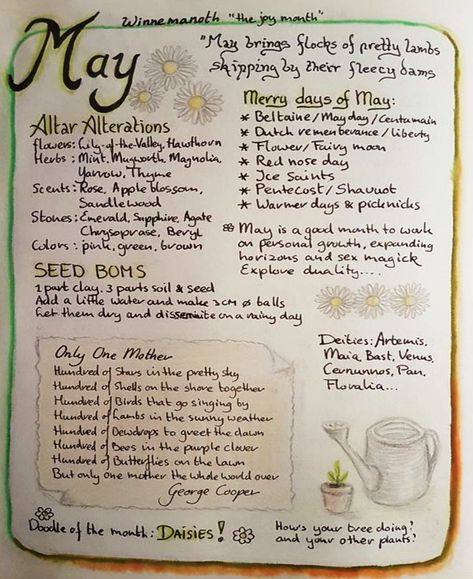 Winnemanoth "the joy month"
May
"May brings flocks of pretty lambs
skipping by their fleecy dams
Altar Alterations
flowers: Lily-of-the-Valley, Hawthorn
Herbs: Mint, Mugworth, Magnolia,
Yarrow, Thyme
Scents: Rose, Apple blossom,
Sandlewood
Stones: Emerald, Sapphire, Agate
Chrysoprase, Beryl
Colors: pink, green, brown
Merry days of May:
* Beltaine/Mayday/Centamain
* Dutch rememberance/liberty
* Flower/Fairy moon
* Red nose day
* Ice Saints
* Pentecost/Shavuot
* Warmer days & picknicks
May is a good month to work
on personal growth, expanding
horizons and sex magick
Explore duality....
SEED BOMS
1 part clay. 3 parts soil & seed
Add a little water and make 3cm ø balls
Let them dry and on a rainy day
Deities: Artemis,
Maia, Bast, Venus,
Cernunnos, Pan,
Floralia...
Only One Mother
Hundred of Stars in the pretty sky
Hundred of Shells on the shore together
Hundred of Birds that go singing by
Hundred of Lambs in the sunny weather
Hundred of Dewdrops to greet the dawn
Hundred of Bees in the purple clover
Hundred of Butterflies on the lawn
But only one mother the whole world over
George Cooper
Doodle of the month: DAISIES!
How's your tree doing?
and your other plants?